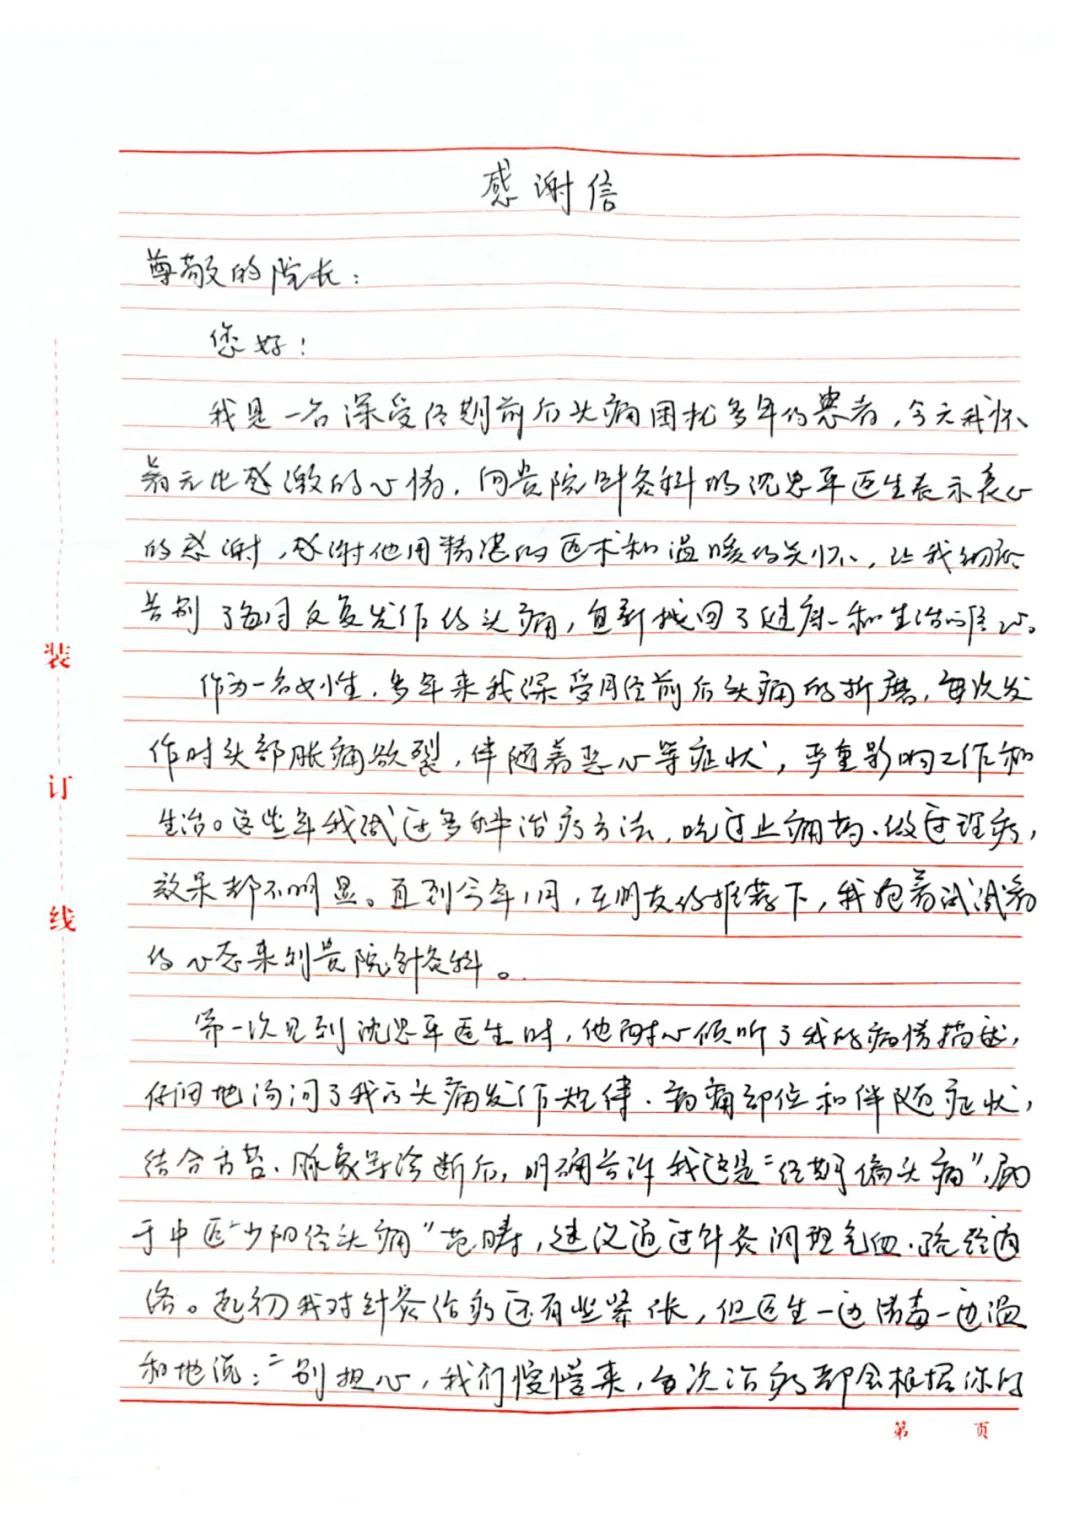 感谢信
尊敬的院长：
您好！
我是一名深受经期前后头痛困扰多年的患者，今天我怀
着无比感激的心情，向贵院针灸科的沈思平医生表示衷心
的感谢，感谢他用精湛的医术和温暖的关怀，让我彻底
告别了每月反复发作的头痛，重新找回了健康和生活的信心。
作为一名女性，多年来我深受月经前后头痛的折磨，每次发
作时头部胀痛欲裂，伴随着恶心等症状，严重影响工作和
生活。这些年我试过多种治疗方法，吃过止痛药、做过理疗，
效果都不明显。直到今年1月，在朋友的推荐下，我抱着试试看
的心态来到贵院针灸科。
第一次见到沈思平医生时，他耐心倾听了我的病情描述，
仔细地询问了我的头痛发作规律、疼痛部位和伴随症状，
结合舌苔、脉象等诊断后，明确告诉我这是“经期偏头痛”，属
于中医“少阳经头痛”范畴，建议通过针灸调理气血、疏经通
络。起初我对针灸治疗还有些紧张，但医生一边消毒一边温
和地说：“别担心，我们慢慢来，每次治疗都会根据你的
装
订
线
第 页